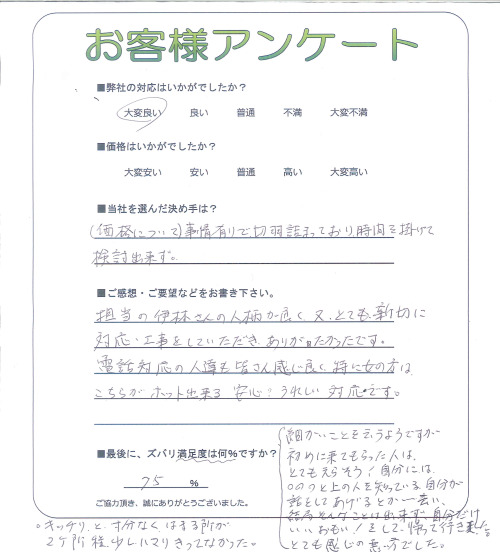 お客様アンケート
■弊社の対応はいかがでしたか？
大変良い 良い 普通 不満 大変不満
■価格はいかがでしたか？
大変安い 安い 普通 高い 大変高い
■当社を選んだ決め手は？
(価格について)事情有りで切羽詰まっており時間を掛けて
検討出来ず。
■ご感想・ご要望などをお書き下さい。
担当の伊林さんの人柄が良く又、とても親切に
対応・工事をしていただきありがたかったです。
電話対応の人達も皆さん感じ良く特に女の方は
こちらがホット出来る安心？うれしい対応です。
■最後に、ズバリ満足度は何％ですか？
75 ％
ご協力頂き、誠にありがとうございました。
細かいことを言うようですが
初めに来てもらった人は、
とてもえらそう！自分には、
と上の人を知っている自分が
話をしてあげるとか言い、
自分だけ
いい、おもい！をして、帰って行きました。
とても感じの悪い方でした。
。キッチリ、と、すき間なくはまる所が
2ケ所程少しハマりきってなかった。